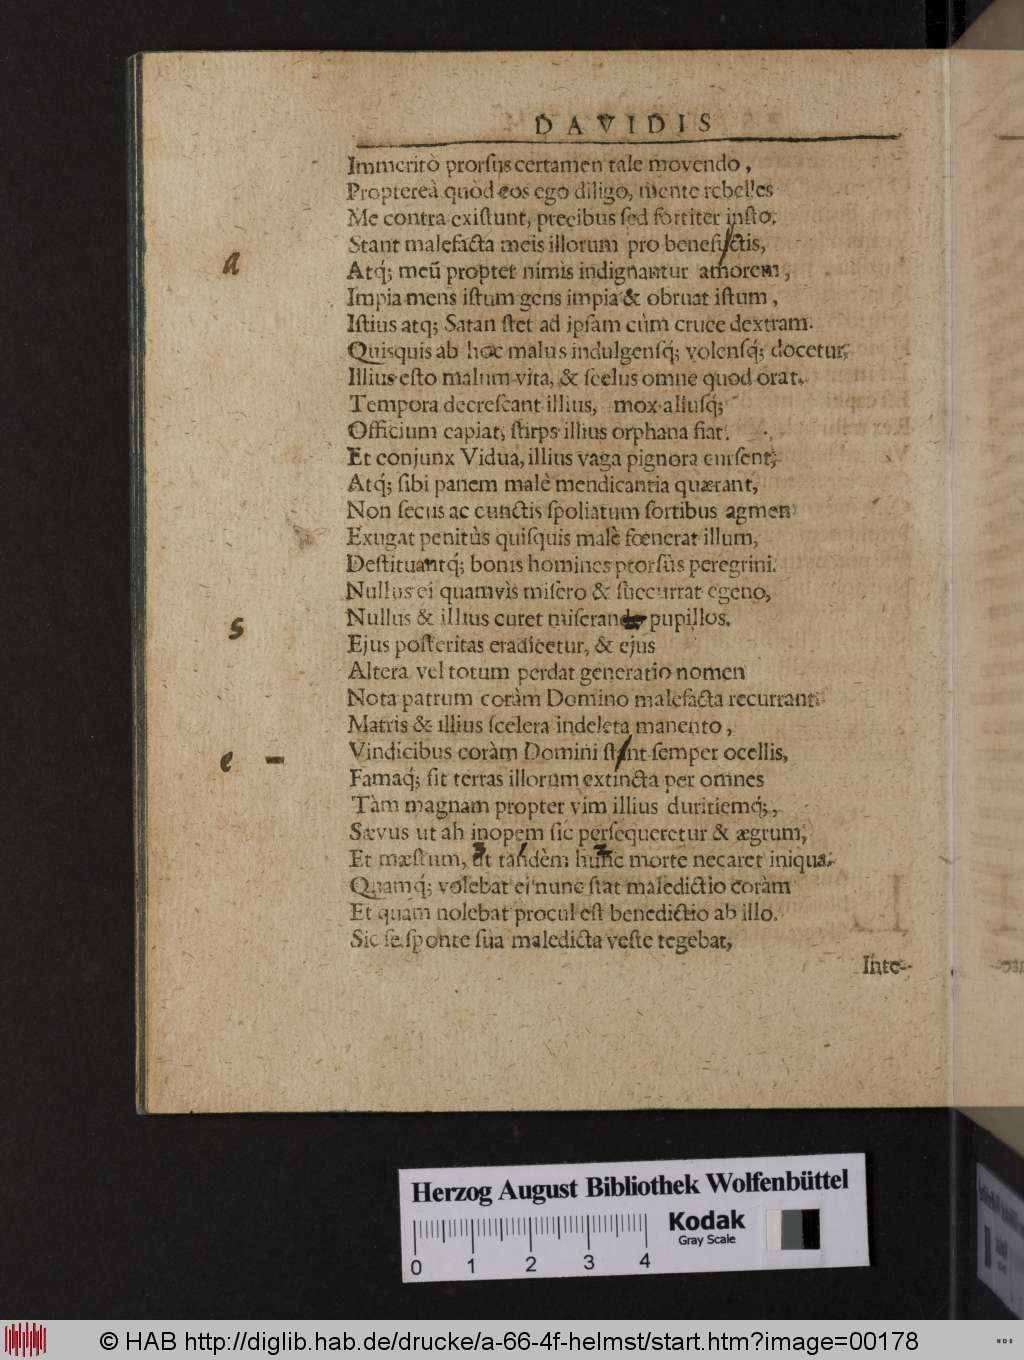 DAVIDIS
Immeritò prorſus certamen tale movendo,
Proptereà quòd eos ego diligo, mente rebelles
Me contra exiſtunt, precibus ſed fortiter inſto.
Stant malefacta meis illorum pro benefictis,
a
Atq; meū propter nimis indignantur amorem,
Impia mens iſtum gens impia & obruat iſtum,
Iſtius atq; Satan ſtet ad ipſam cùm cruce dextram.
Quisquis ab hoc malus indulgenſq; volenſq; docetur,
Illius eſto malum vita, & ſcelus omne quod orat.
Tempora decreſcant illius, mox aliuſq;
Officium capiat, ſtirps illius orphana fiat.
Et conjunx Vidua, illius vaga pignora curſent,
Atq; ſibi panem malè mendicantia quærant,
Non ſecus ac cunctis ſpoliatum ſortibus agmen
Exugat penitùs quiſquis malè fœnerat illum,
Deſtituantq; bonis homines prorſùs peregrini.
Nullus ei quamvìs miſero & ſuccurrat egeno,
s
Nullus & illius curet miſerando pupillos.
Ejus poſteritas eradicetur, & ejus
Altera vel totum perdat generatio nomen
Nota patrum coràm Domino malefacta recurrant
Matris & illius ſcelera indeleta manento,
e -
Vindicibus coràm Domini ſtant ſemper ocellis,
Famaq; ſit terras illorum extincta per omnes
Tàm magnam propter vim illius duritiemq;,
Sævus ut ab inopem ſic perſequeretur & ægrum,
Et mæſtum, ut tandèm hunc morte necaret iniqua.
Quamq; volebat ei nunc ſtat maledictio coràm
Et quam nolebat procul eſt benedictio ab illo.
Sic ſe ſponte ſua maledicta veſte tegebat,
Inte-
Herzog August Bibliothek Wolfenbüttel
Kodak
Gray Scale
0 1 2 3 4
© HAB http://diglib.hab.de/drucke/a-66-4f-helmst/start.htm?image=00178